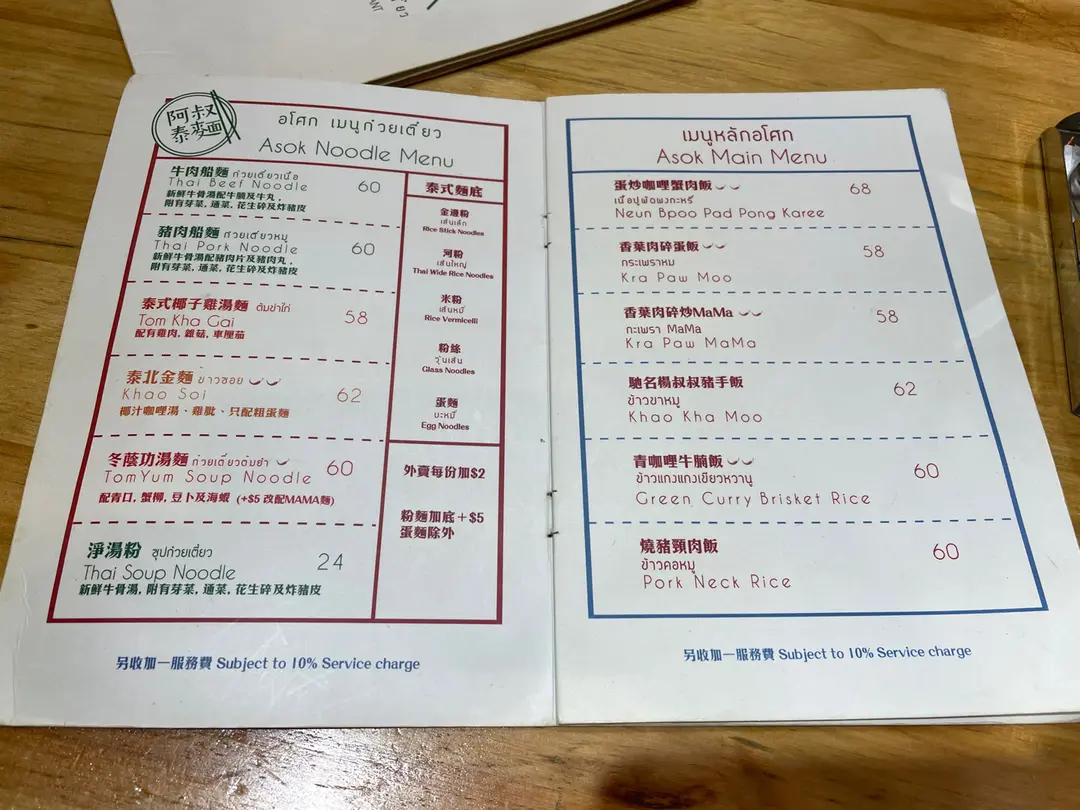 ANT
ยว
阿叔
泰麵
อโศก เมนูก๋วยเตี๋ยว
Asok Noodle Menu
牛肉船麵 ก๋วยเตี๋ยวเนื้อ
Thai Beef Noodle 60
新鮮牛骨湯配牛腩及牛丸,
附有芽菜, 通菜, 花生碎及炸豬皮
豬肉船麵 ก๋วยเตี๋ยวหมู
Thai Pork Noodle 60
新鮮牛骨湯配豬肉片及豬肉丸,
附有芽菜, 通菜, 花生碎及炸豬皮
泰式椰子雞湯麵 ต้มข่าไก่
Tom Kha Gai 58
配有雞肉, 雜菇, 車厘茄
泰北金麵 ข้าวซอย
Khao Soi 62
椰汁咖哩湯、雞髀、只配粗蛋麵
冬蔭功湯麵 ก๋วยเตี๋ยวต้มยำ 60
TomYum Soup Noodle
配青口, 蟹柳, 豆卜及海蝦 (+$5 改配MAMA麵)
淨湯粉 ซุปก๋วยเตี๋ยว 24
Thai Soup Noodle
新鮮牛骨湯, 附有芽菜, 通菜, 花生碎及炸豬皮
泰式麵底
金邊粉
เส้นเล็ก
Rice Stick Noodles
河粉
เส้นใหญ่
Thai Wide Rice Noodles
米粉
เส้นหมี่
Rice Vermicelli
粉絲
วุ้นเส้น
Glass Noodles
蛋麵
บะหมี่
Egg Noodles
外賣每份加$2
粉麵加底+$5
蛋麵除外
另收加一服務費 Subject to 10% Service charge
เมนูหลักอโศก
Asok Main Menu
蛋炒咖哩蟹肉飯 68
เนื้อปูผัดผงกะหรี่
Neun Bpoo Pad Pong Karee
香葉肉碎蛋飯 58
กระเพราหมู
Kra Paw Moo
香葉肉碎炒MaMa 58
กะเพรา MaMa
Kra Paw MaMa
馳名楊叔叔豬手飯 62
ข้าวขาหมู
Khao Kha Moo
青咖哩牛腩飯 60
ข้าวแกงแกงเขียวหวานู
Green Curry Brisket Rice
燒豬頸肉飯 60
ข้าวคอหมู
Pork Neck Rice
另收加一服務費 Subject to 10% Service charge